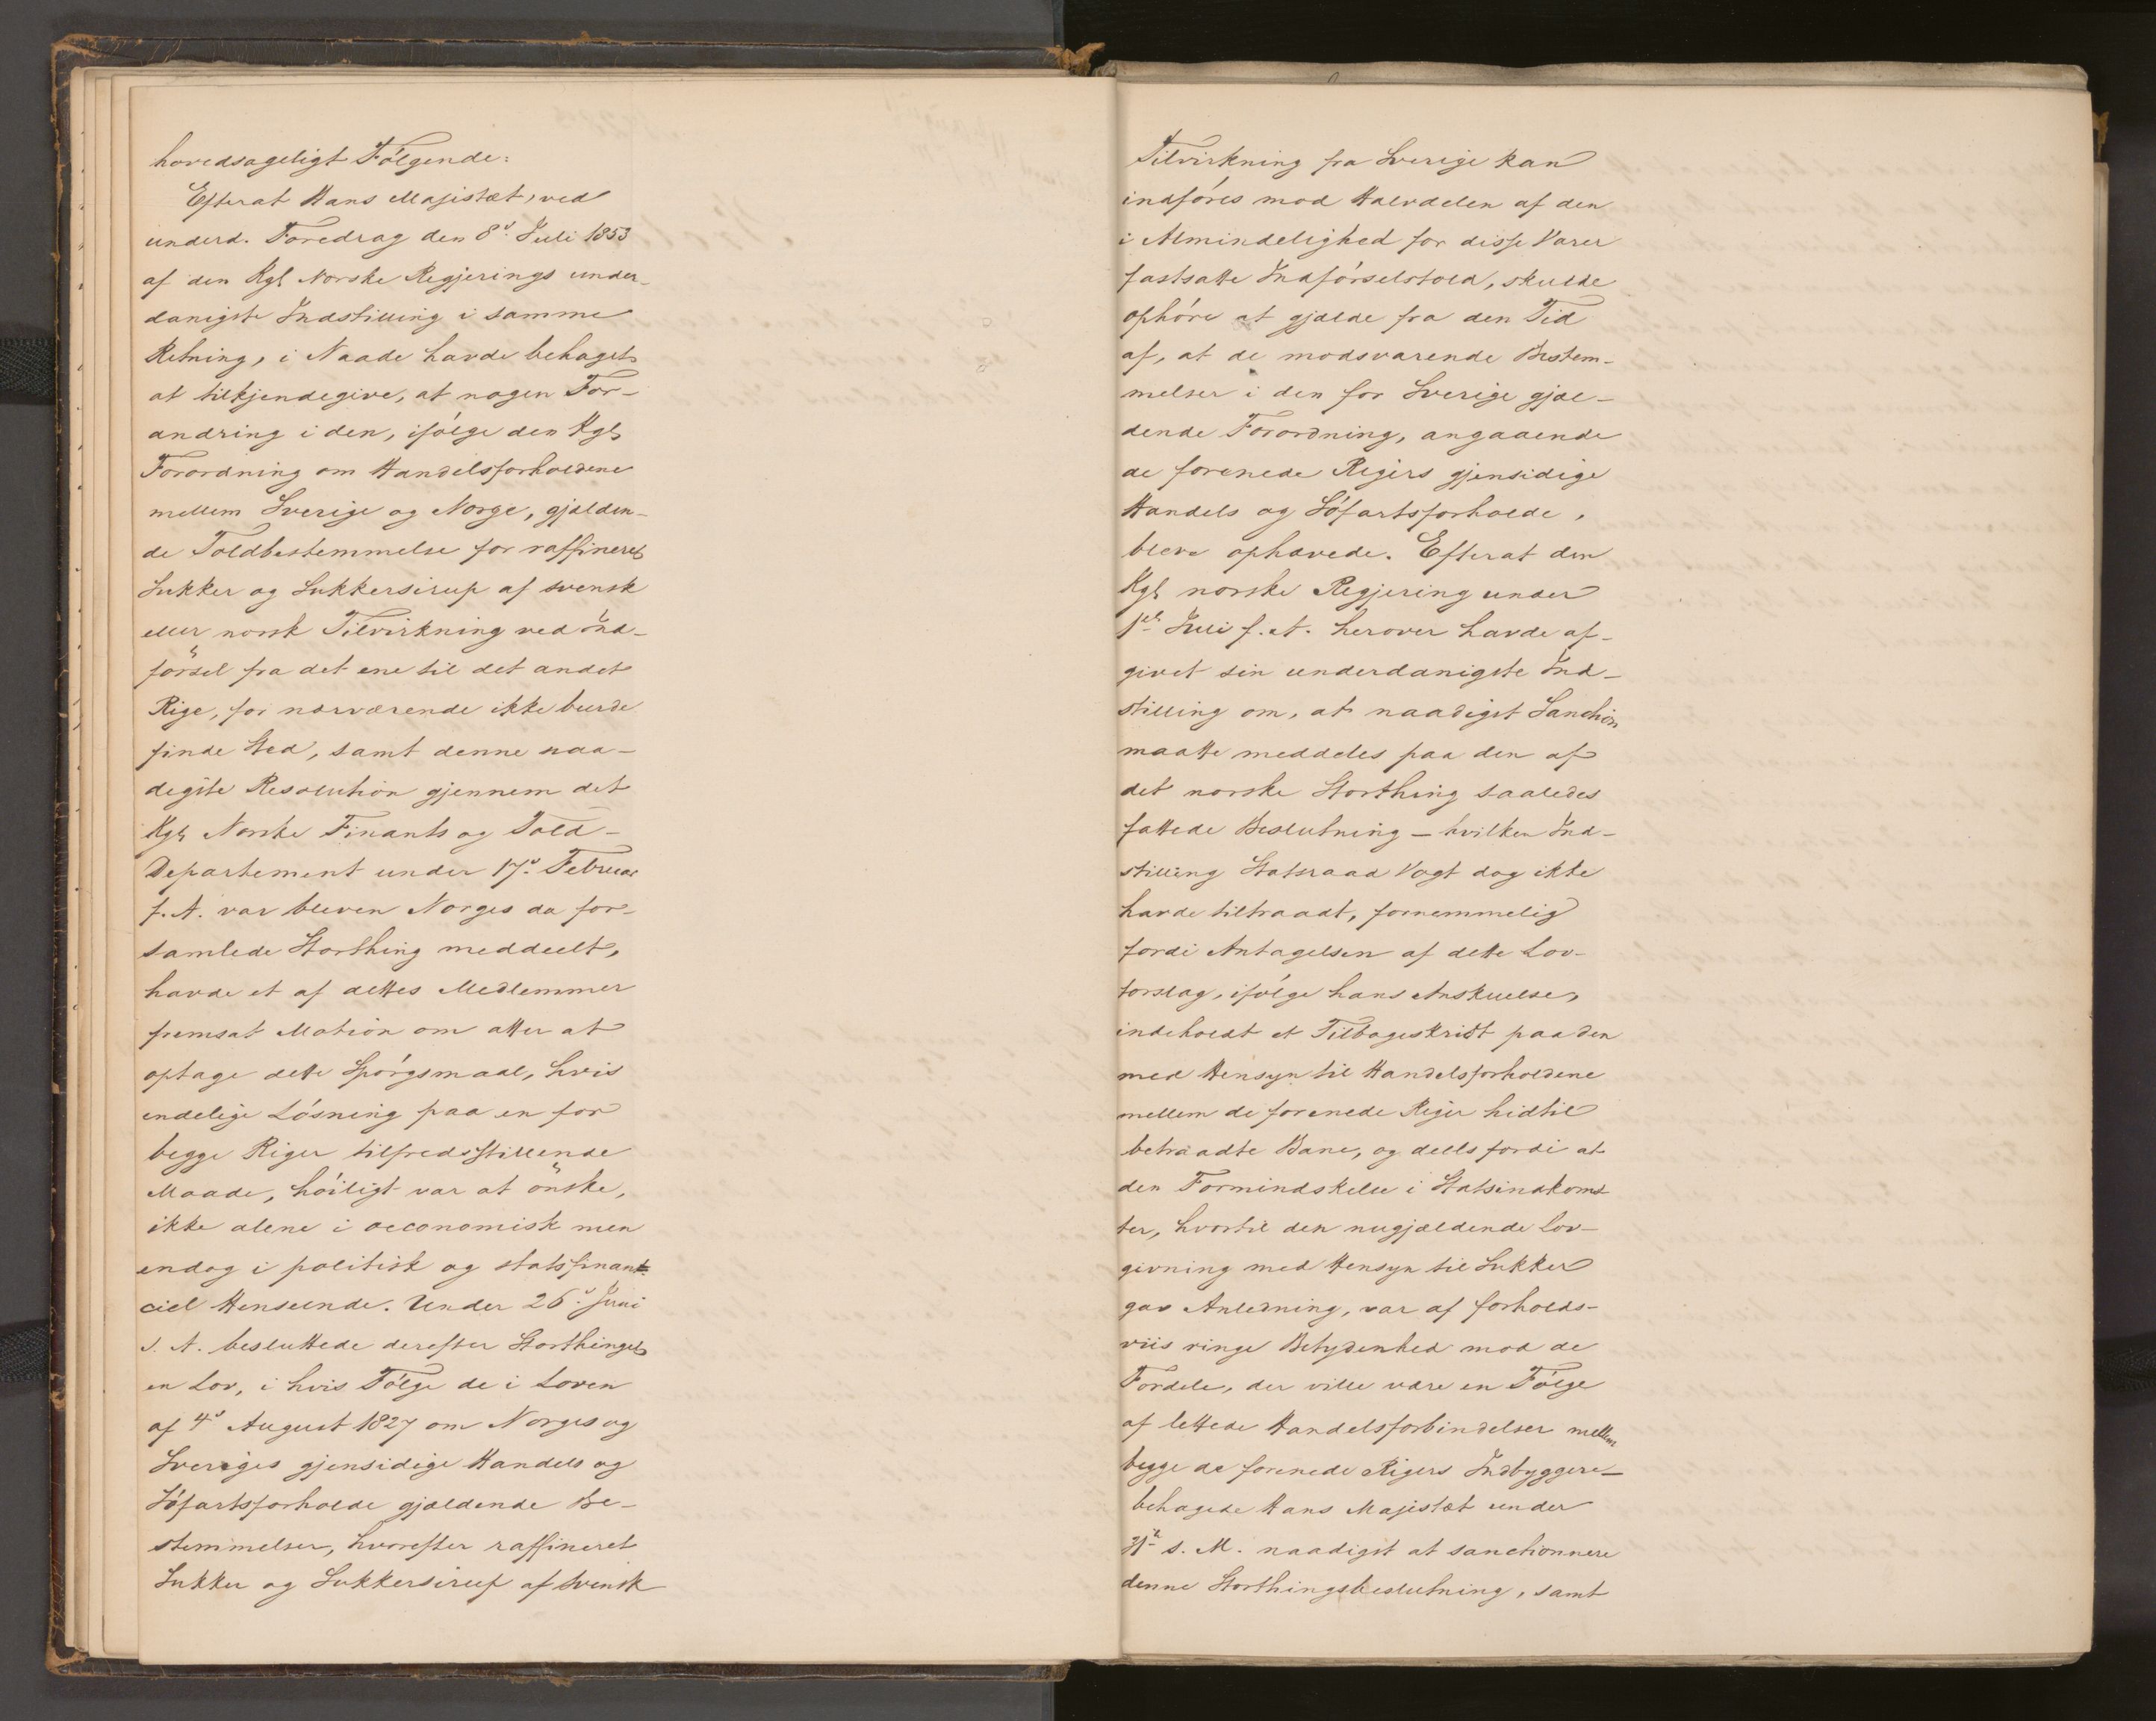 hovedsageligt Følgende:
Efterat Hans Majestæt, ved
underd. Foredrag den 8de Juli 1853
af den Kgl Norske Regjerings under-
danigste Indstilling i samme
Retning, i Naade havde behaget
at tilkjendegive, at nogen For-
andring i den, ifølge den Kgl
Forordning om Handelsforholdene
mellem Sverige og Norge, gjælden-
de Toldbestemmelse for raffineret
Sukker og Sukkersirup af svensk
eller norsk Tilvirkning ved Ind-
försel fra det ene til det andet
Rige, for nærværende ikke burde
finde Sted, samt denne naa-
digste Resolution gjennem det
Kgl Norske Finants og Told-
Departement under 17de Februar
f. A. var bleven Norges da for-
samlede Storthing meddeelt,
havde et af dettes Medlemmer
fremsat Motion om atter at
optage dette Spørgsmaal, hvis
endelige Løsning paa en for
begge Riger tilfredsstillende
Maade, høiligt var at önske,
ikke alene i oeconomisk men
endog i politisk og statsfinant-
ciel Henseende. Under 26de Juni
s. A. besluttede derefter Storthinget
en Lov, i hvis Følge de i Loven
af 4de August 1827 om Norges og
Sveriges gjensidige Handels og
Søfartsforholde gjældende Be-
stemmelser, hvorefter raffineret
Sukker og Sukkersirup af Svensk
Tilvirkning fra Sverige kan
indføres mod Halvdelen af den
i Almindelighed for disse Varer
fastsatte Indførselstold, skulde
ophøre at gjælde fra den Tid
af, at de modsvarende Bestem-
melser i den for Sverige gjæl-
dende Forordning, angaaende
de forenede Rigers gjensidige
Handels og Søfartsforholde,
bleve ophævede. Efterat den
Kgl norske Regjering under
1ste Juli f. A. herover havde af-
givet sin underdanigste Ind-
stilling om, at naadigst Sanction
maatte meddeles paa den af
det norske Storthing saaledes
fattede Beslutning – hvilken Ind-
stilling Statsraad Vogt dog ikke
havde tiltraadt, fornemmelig
fordi Antagelsen af dette Lov-
forslag, ifølge hans Anskuelse,
indeholdt et Tilbageskridt paa den
med Hensyn til Handelsforholdene
mellem de forenede Riger hidtil
betraadte Bane, og deels fordi at
den Formindskelse i Statsindkoms-
ter, hvortil den nugjældende Lov-
givning med Hensyn til Sukker
gav Anledning, var af forholds-
viis ringe Betydenhed mod de
Fordele, der ville være en Følge
af lettede Handelsforbindelser mellem
begge de forenede Rigers Indbyggere –
behagede Hans Majestæt under
31te s. M. naadigst at sanctionnere
denne Storthingsbeslutning, samt